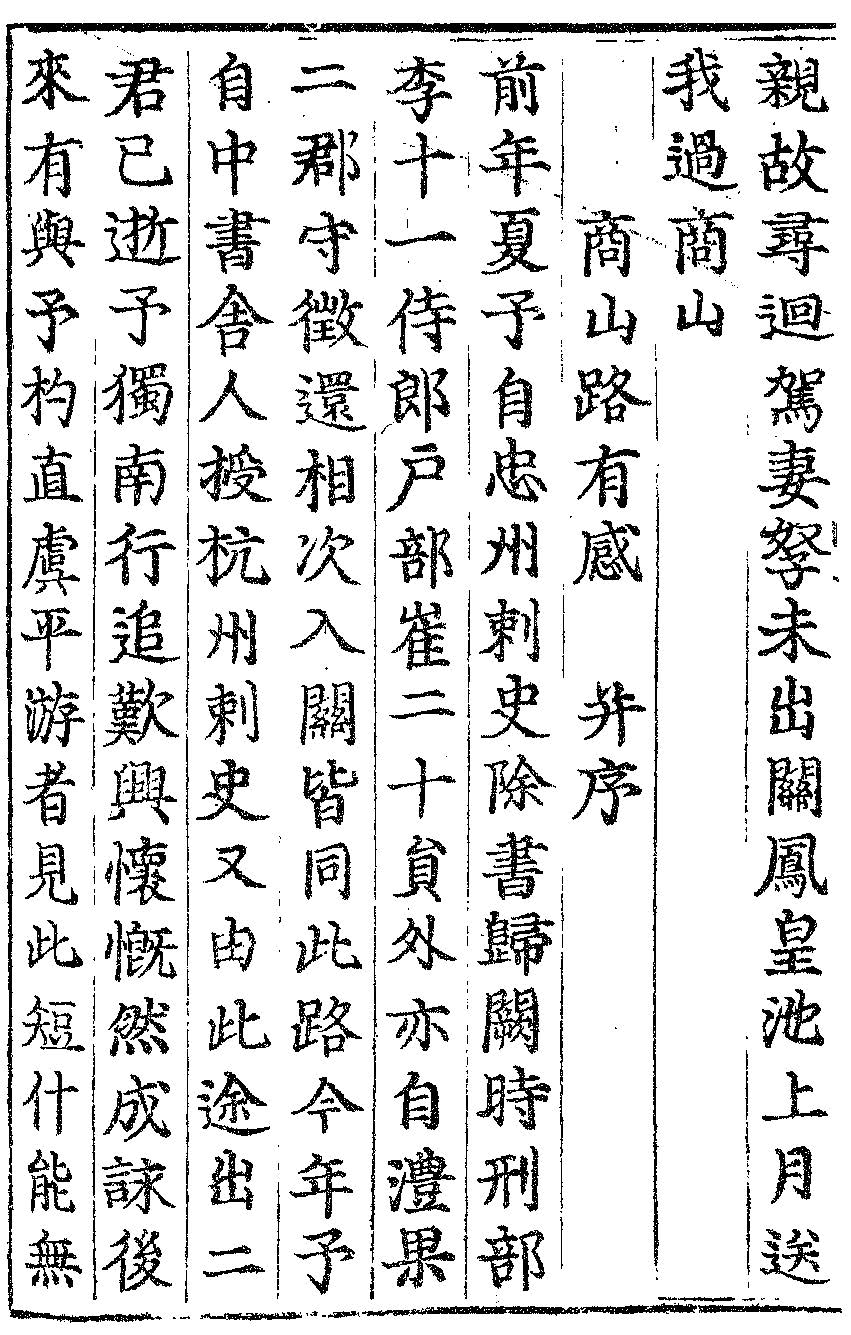 親故尋迴駕妻孥未出關鳳皇池上月送
我過商山
商山路有感　并序
前年夏予自忠州刺史除書歸闕時刑部
李十一侍郎戶部崔二十員外亦自澧果
二郡守徵還相次入關皆同此路今年予
自中書舍人授杭州刺史又由此途出二
君已逝予獨南行追歎興懷慨然成詠後
來有與予杓直虞平游者見此短什能無